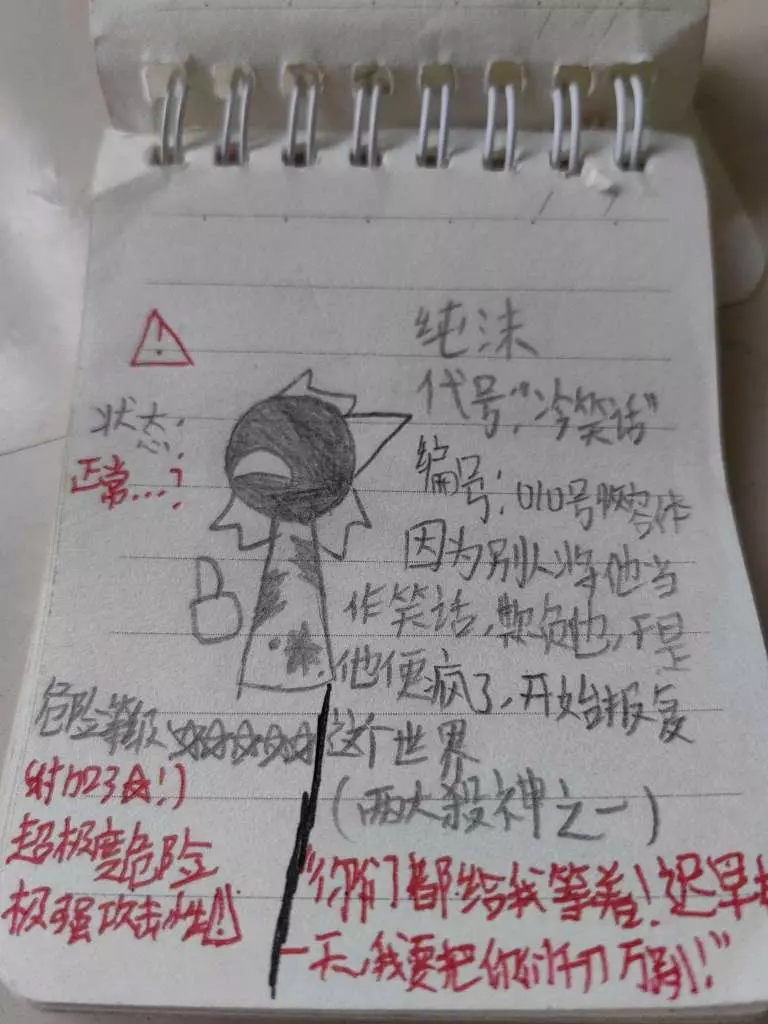 纯沫
代号:“冷笑话”
状态:
正常...?
编号:010号
因为别人将他当
作笑话,欺负他,于是
他便疯了,开始报复
这个世界
(两大殺神之一)
危险等级:☆☆☆☆☆
3☆!)
超极度危险
极强攻击性!
“你们都给我等着!迟早
一天,我要把你们千刀万剐!”